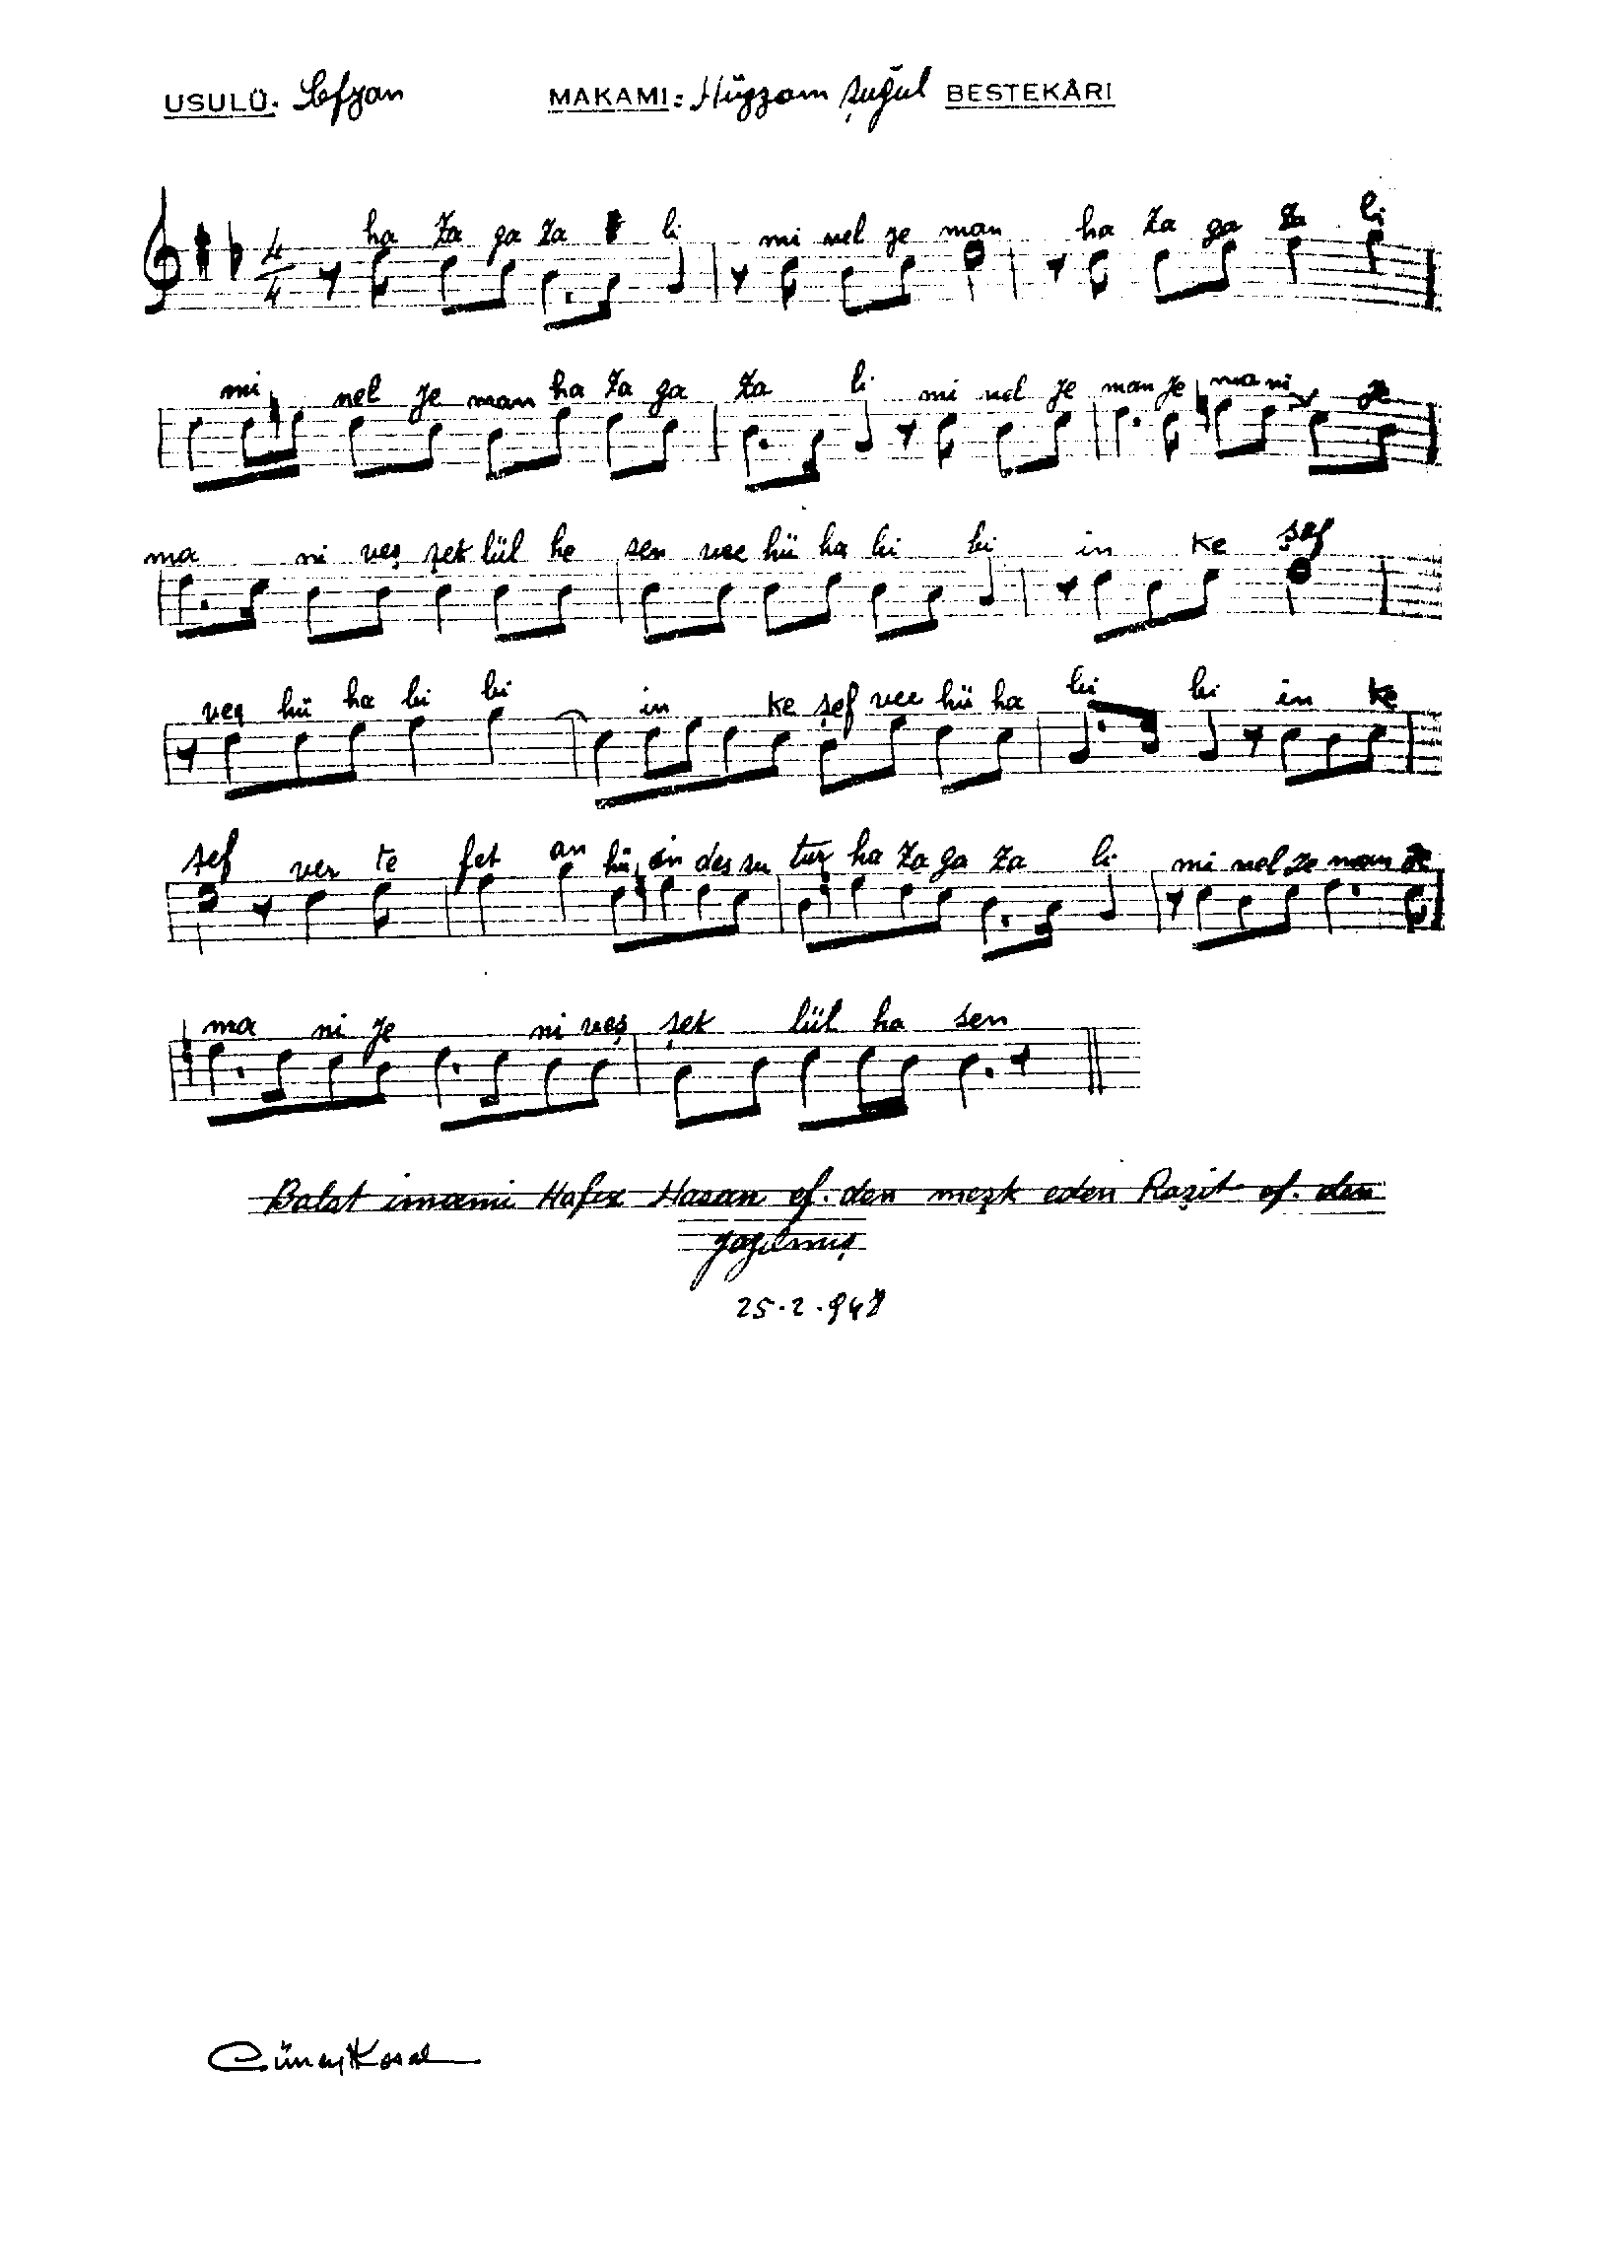 USULÜ: Sofyan MAKAMI: Hüzzam şuğul BESTEKÂRI
4/4 ha za ga za li mi nel ze man ha za ga za li
mi nel ze man ha za ga za li mi nel ze man ze ma ni ze
ma ni veş şek lül he sen vec hü ha bi bi in ke şef
vec hü ha bi bi in ke şef vec hü ha bi bi in ke
şef ver te fet an hü in des su tur ha za ga za li mi nel ze man ze
ma ni ze ni veş şek lül ha sen
Balat imamı Hafız Hasan ef. den meşk eden Raşit ef. den
yazılmış
25.2.948
Cüneyt Kosal